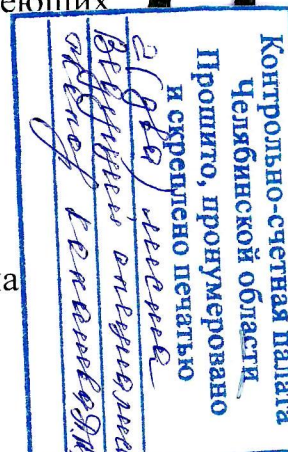 еющих
на
Контрольно-счетная палата
Челябинской области
Прошито, пронумеровано
и скреплено печатью
2 (два) листа
Ведущий специалист